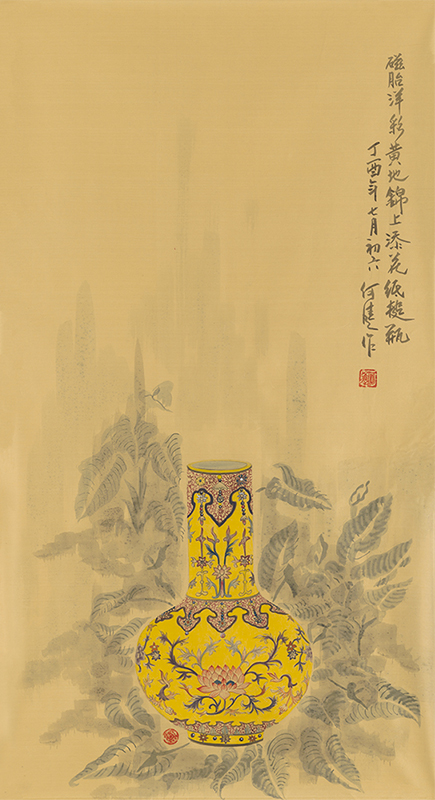 磁胎洋彩黄地錦上添花纸搥瓶
丁酉年七月初六 何建作